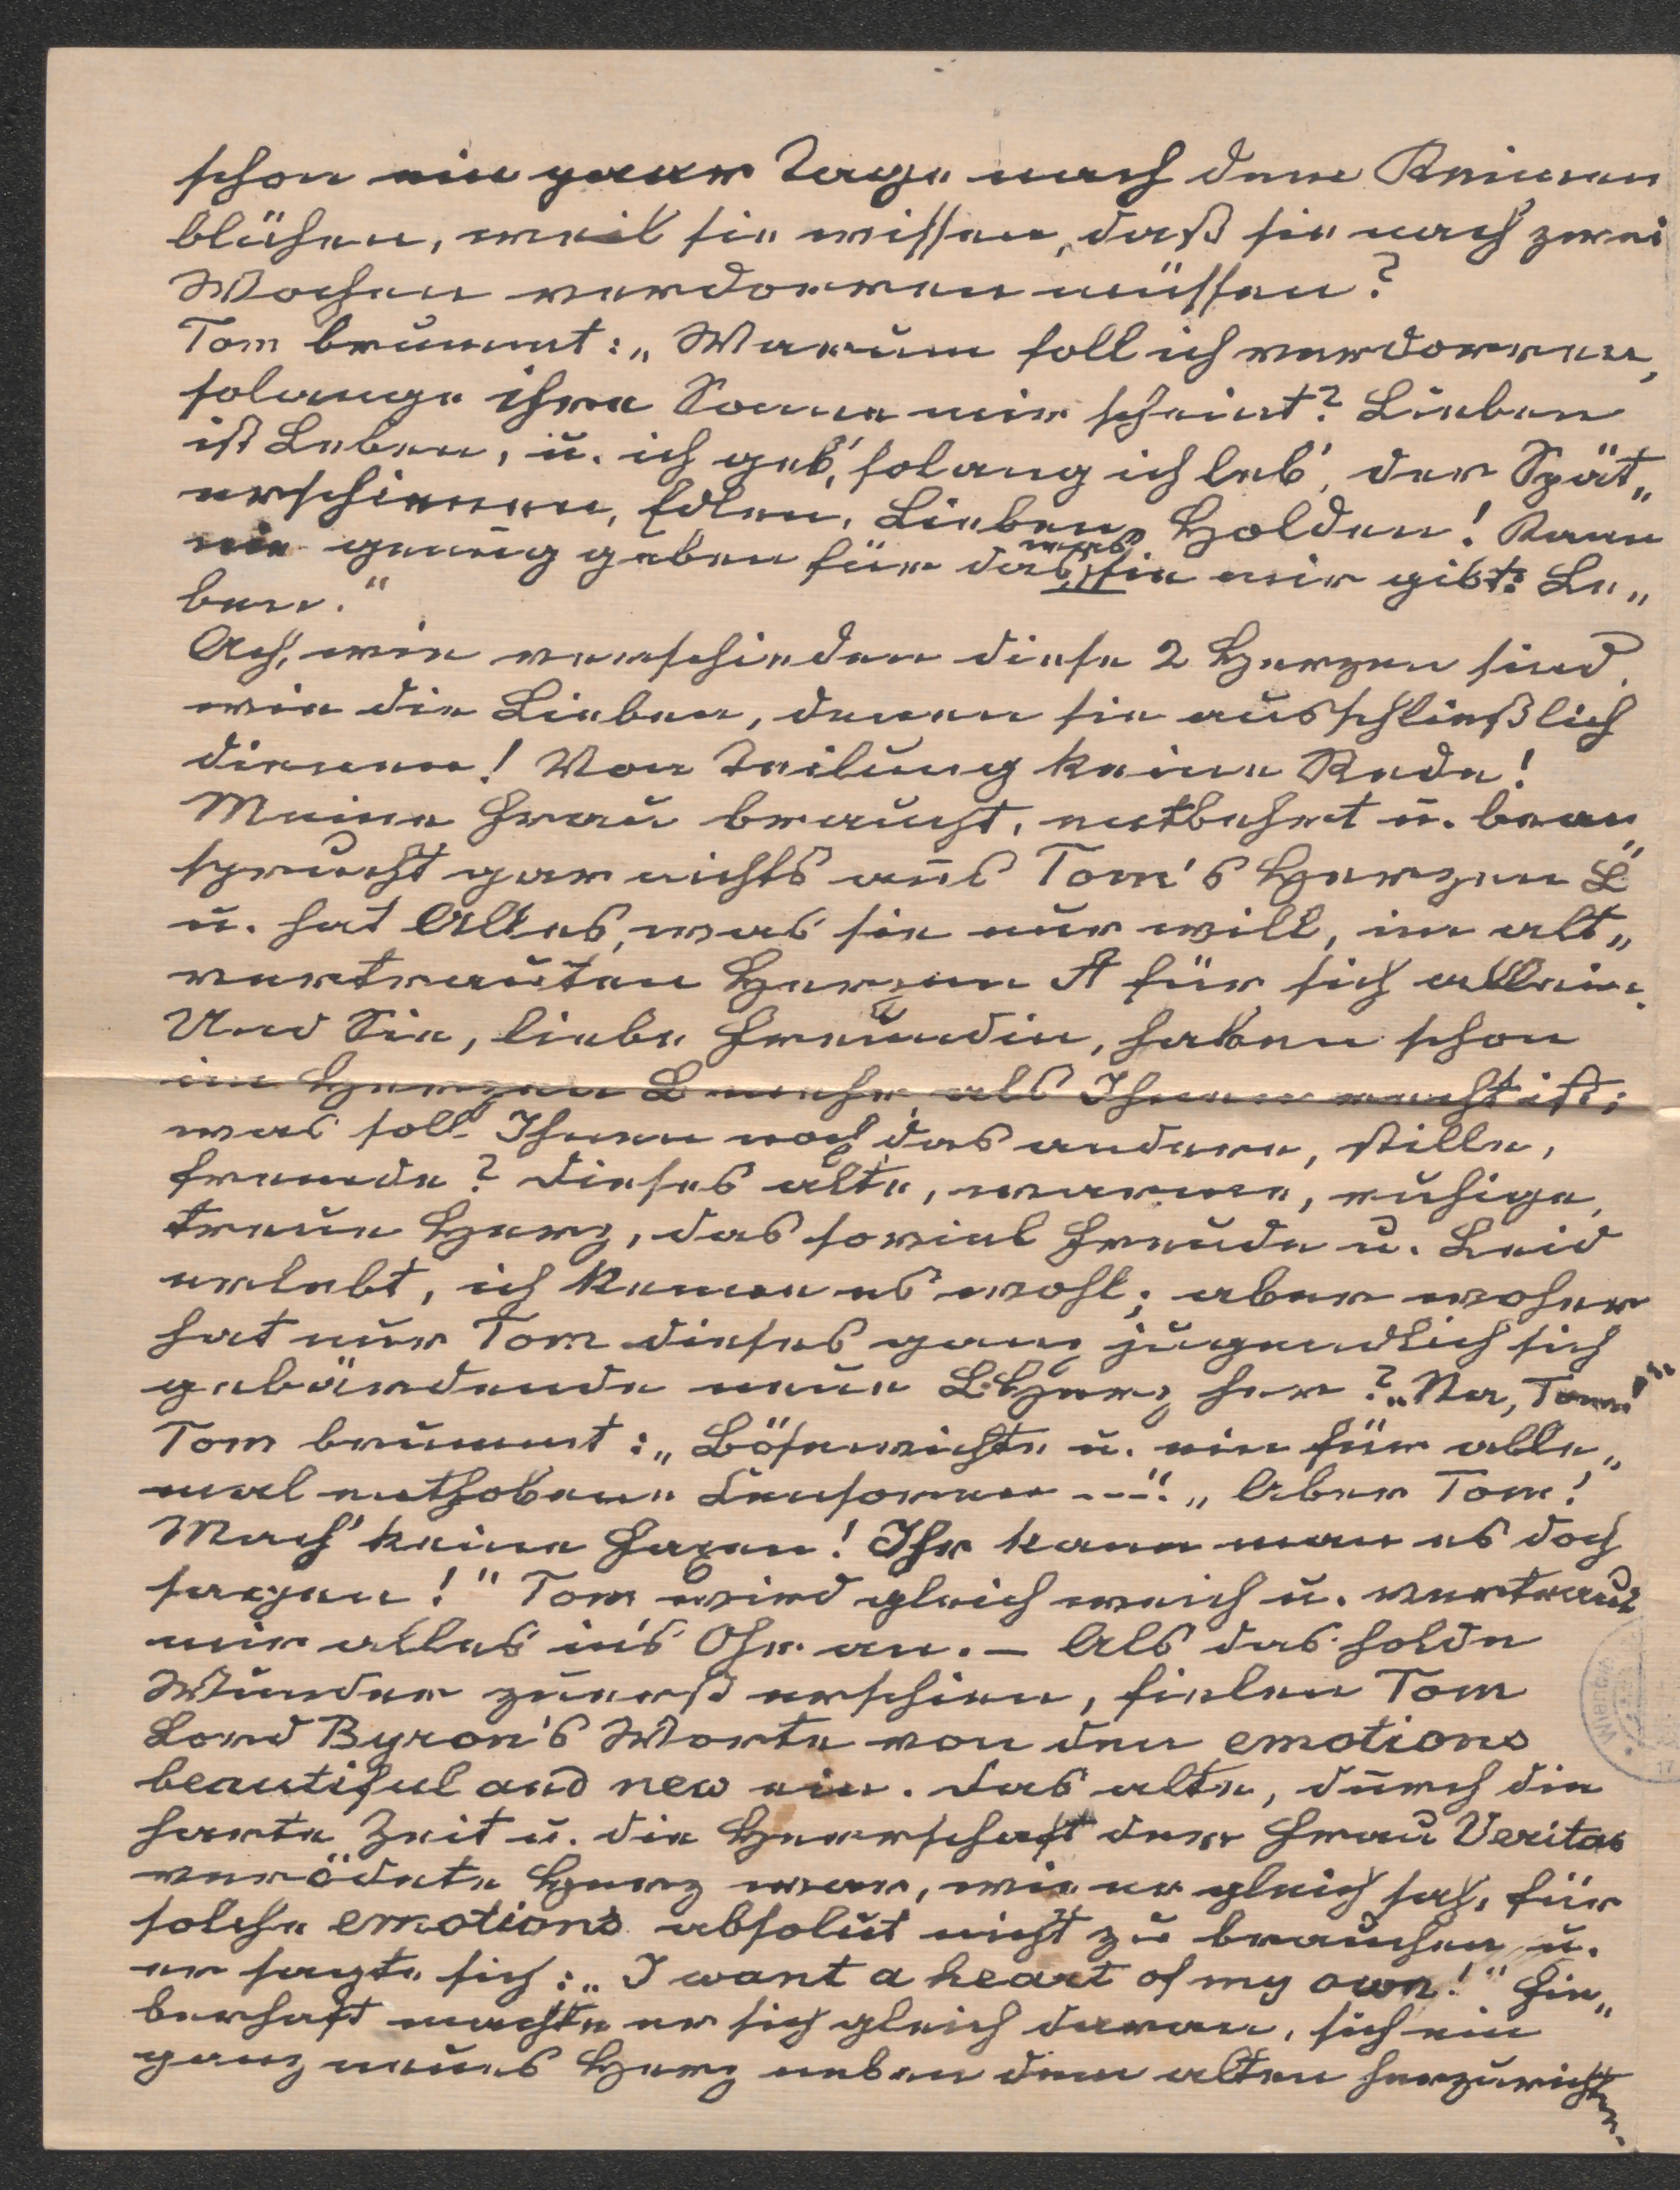 schon ein paar Tage nach dem Keimen
blühen, weil sie wissen, daß sie nach zwei
Wochen verdorren müssen?
Tom brummt: „Warum soll ich verdorren,
solange ihre Sonne mir scheint? Lieben
ist Leben, u. ich geb', solang ich leb', der Spät„
erschienen, Edlen, Lieben, Holden! Kann
nie genug geben für das, was sie mir gibt: Le„
ben."
Ach, wie verschieden diese 2 Herzen sind,
wie die Lieben, denen sie ausschließlich
dienen! Von Teilung keine Rede!
Meine Frau braucht, entbehrt u. bean„
sprucht gar nichts aus Tom's Herzen L
u. hat Alles, was sie nur will, im alt„
vertrauten Herzen A für sich allein.
Und Sie, liebe Freundin, haben schon
im Herzen L mehr als Ihnen recht ist;
was soll Ihnen noch das andere, stille,
fremde? Dieses alte, warme, ruhige,
treue Herz, das soviel Freude u. Leid
erlebt, ich kenne es wohl; aber woher
hat nur Tom dieses ganz jugendlich sich
gebärdende neue L Herz her? „Na, Tom!"
Tom brummt: „Bösewichte u. ein für alle„
mal enthobene Censoren ---". „Aber Tom!
Mach' keine Faxen! Ihr kann man es doch
sagen!" Tom wird gleich weich u. vertraut
mir alles in's Ohr an. – Als das holde
Wunder zuerst erschien, fielen Tom
Lord Byron's Worte von den emotions
beautiful and new ein. Das alte, durch die
harte Zeit u. die Herrschaft der Frau Veritas
verödete Herz war, wie er gleich sah, für
solche emotions absolut nicht zu brauchen u.
er sagte sich: „I want a heart of my own!" Fie„
berhaft machte er sich gleich daran, sich ein
ganz neues Herz neben dem alten herzurichten.